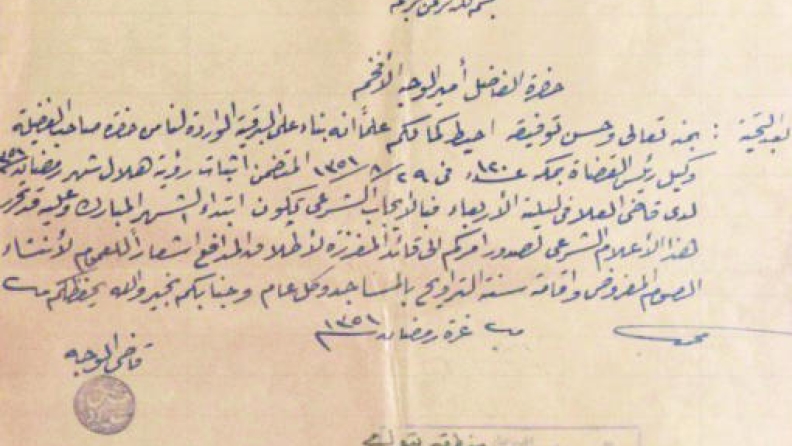 حضرة الفاضل أمير الوجه الأفخم
بعد التحية : بمنه تعالى وحسن توفيقه احيط كمالكم علماً انه بناء على البرقية الواردة لنا من حضرة صاحب الفضيلة
وكيل رئيس القضاة بمكة عدد ١٢٠٠ في ٢٩/٨/١٣٥١ المتضمن اثبات رؤية هلال شهر رمضان ١٣٥١
لدى قاضي العلا في ليلة الأربعاء فبالايجاب الشرعي يكون ابتداء الشهر المبارك وعليه قد تحرر
هذا الأعلام الشرعي لصدور امركم الى قائد المفرزة لأطلاق المدافع اشعاراً للعموم لأنشاء
الصوم المفروض واقامة سنة التراويح بالمساجد وكل عام وجنابكم بخير والله يحفظكم
غرة رمضان ١٣٥١
قاضي الوجه